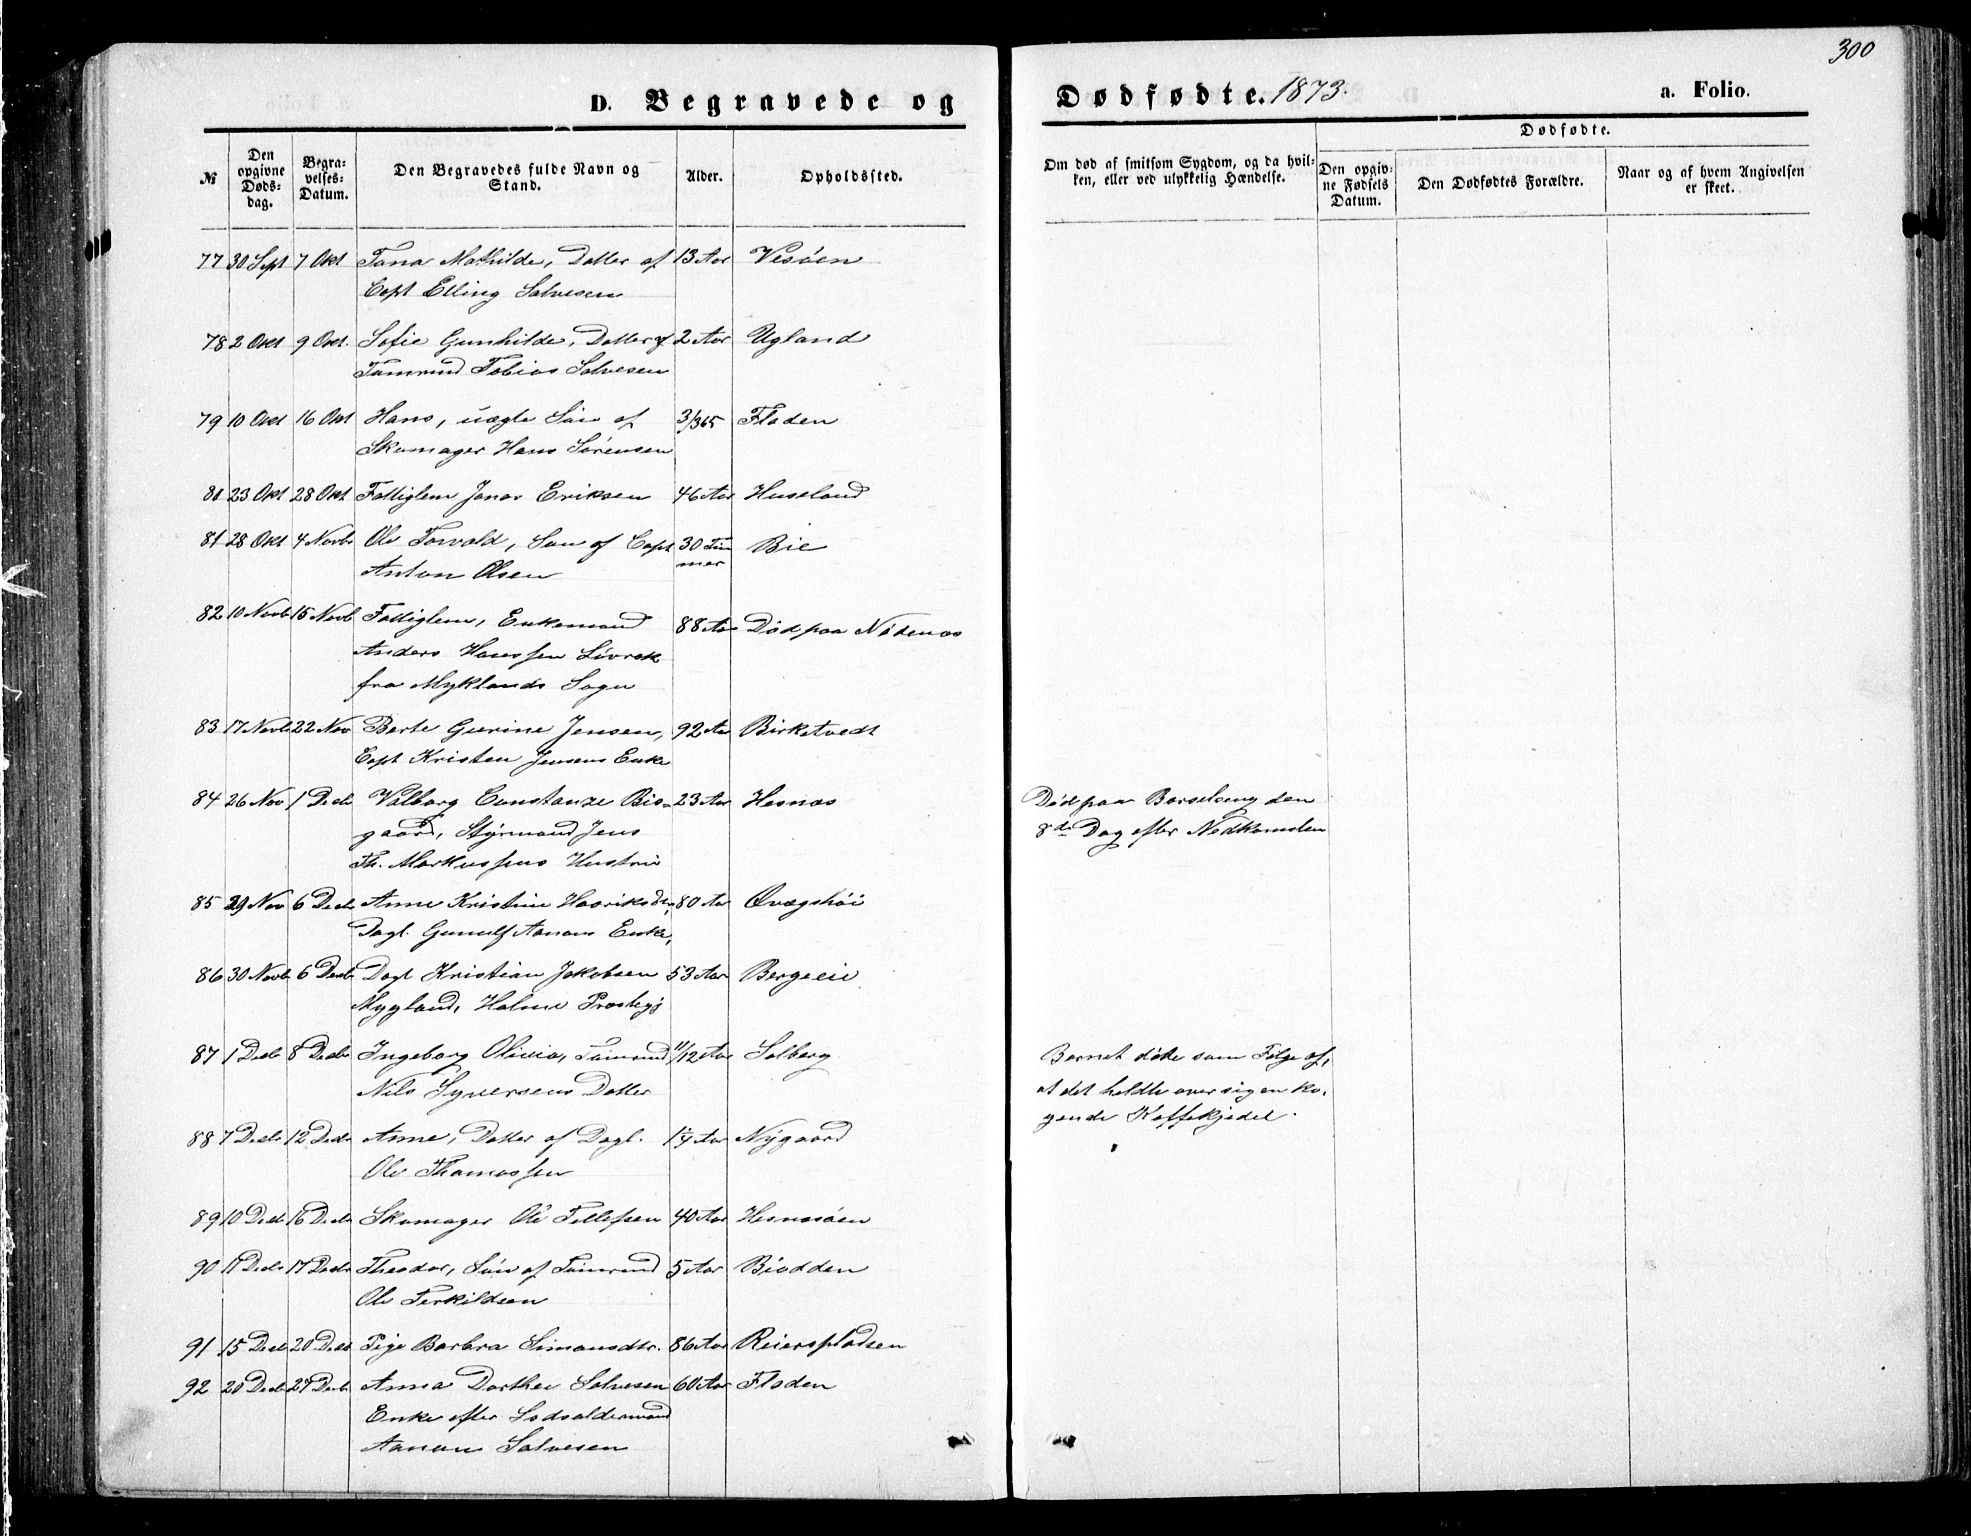 300
D. Begravede og Dødfødte. 1873. a. Folio.
№
Den opgivne Døds-dag.
Begra-velses-Datum.
Den Begravedes fulde Navn og Stand.
Alder.
Opholdssted.
Om død af smitsom Sygdom, og da hvil-ken, eller ved ulykkelig Hændelse.
Dødfødte.
Den opgiv-ne Fødsels Datum.
Den Dødfødtes Forældre.
Naar og af hvem Angivelsen er skeet.
77 30 Sept 7 Okt Tana Mathilde, Datter af 13 Aar Vesøen
Capt Elling Salvesen
78 2 Okt 9 Okt. Sofie Gunhilde, Datter af 2 Aar Ugland
Tømmd Tobias Salvesen
79 10 Okt 16 Okt Hans, uægte Søn af 3/365 Fladen
Skomager Hans Sørensen
80 23 Okt 28 Okt Fattiglem Jonas Eriksen 46 Aar Huseland
81 28 Okt 4 Novb Ole Torvald, Søn af Capt 30 Tim Bie
mer
Anton Olsen
82 10 Novb 15 Novb Fattiglem, Enkemand 88 Aar Død paa Nødenæs
Anders Hanssen Løvrak
fra Myklands Sogn
83 17 Novb 22 Nov Berte Gurine Jensen, 92 Aar Birketvedt
Capt Kristen Jensens Enke
84 26 Nov 1 Decb Valborg Constanze Bis- 23 Aar Hesnæs Død paa Barselseng den
gaard, Styrmand Jens 8de Dag efter Nedkomsten
Th. Markussens Hustru
85 29 Nov 6 Decb Anne Kristine Henriksdtr, 80 Aar Qvægshøi
Dagl. Gunulf Aanons Enke,
86 30 Novb 6 Decb Dagl Kristian Jakobsen 53 Aar Bergeeie
Mygland, Holme Præstegj
87 1 Decb 8 Decb Ingeborg Olivia, Tømmd 11/12 Aar Solberg Barnet døde som Følge af,
Nils Syversens Datter at det heldte over sig en ko-
gende Kaffekjedel.
88 7 Decb 12 Decb Anne, Datter af Dagl. 1¼ Aar Nygaard
Ole Thomassen
89 10 Decb 16 Decb Skomager Ole Tellefsen 40 Aar Hesnesøen
90 11 Decb 17 Decb Theodor, Søn af Tømmd 5 Aar Biodden
Ole Terkildsen
91 15 Decb 20 Decb Pige Barbra Simonsdtr. 86 Aar Reierspladsen
92 20 Decb 27 Decb Anna Dorthea Salvesen 60 Aar Fladen
Enke efter Lodsoldermand
Aanon Salvesen